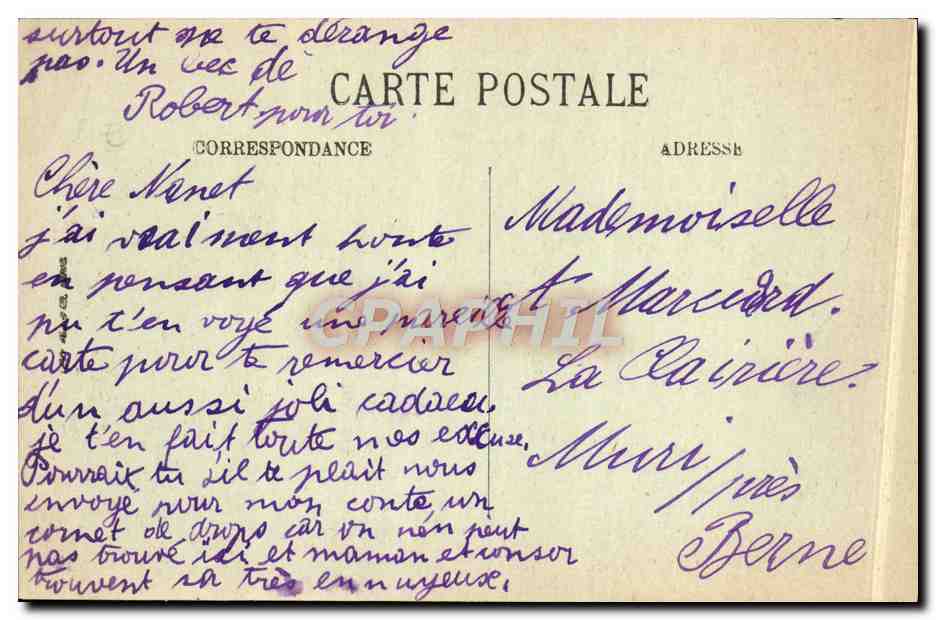 surtout ne te dérange
pas. Un bec de
Robert pour toi.
CARTE POSTALE
CORRESPONDANCE
ADRESSE
Chère Nanet
j'ai vraiment honte
en pensant que j'ai
pu t'en voyé une pareille
carte pour te remercier
d'un aussi joli cadaeu.
je t'en fait toute nos excuse.
Pourrait tu s'il te plait nous
envoyé pour mon conte un
cornet de drops car on n'en peut
pas trouvé ici et maman et
trouvent sa très ennuyeux.
Mademoiselle
A Marcuard.
La Clairière.
Muri / près
Berne
CPAPHIL